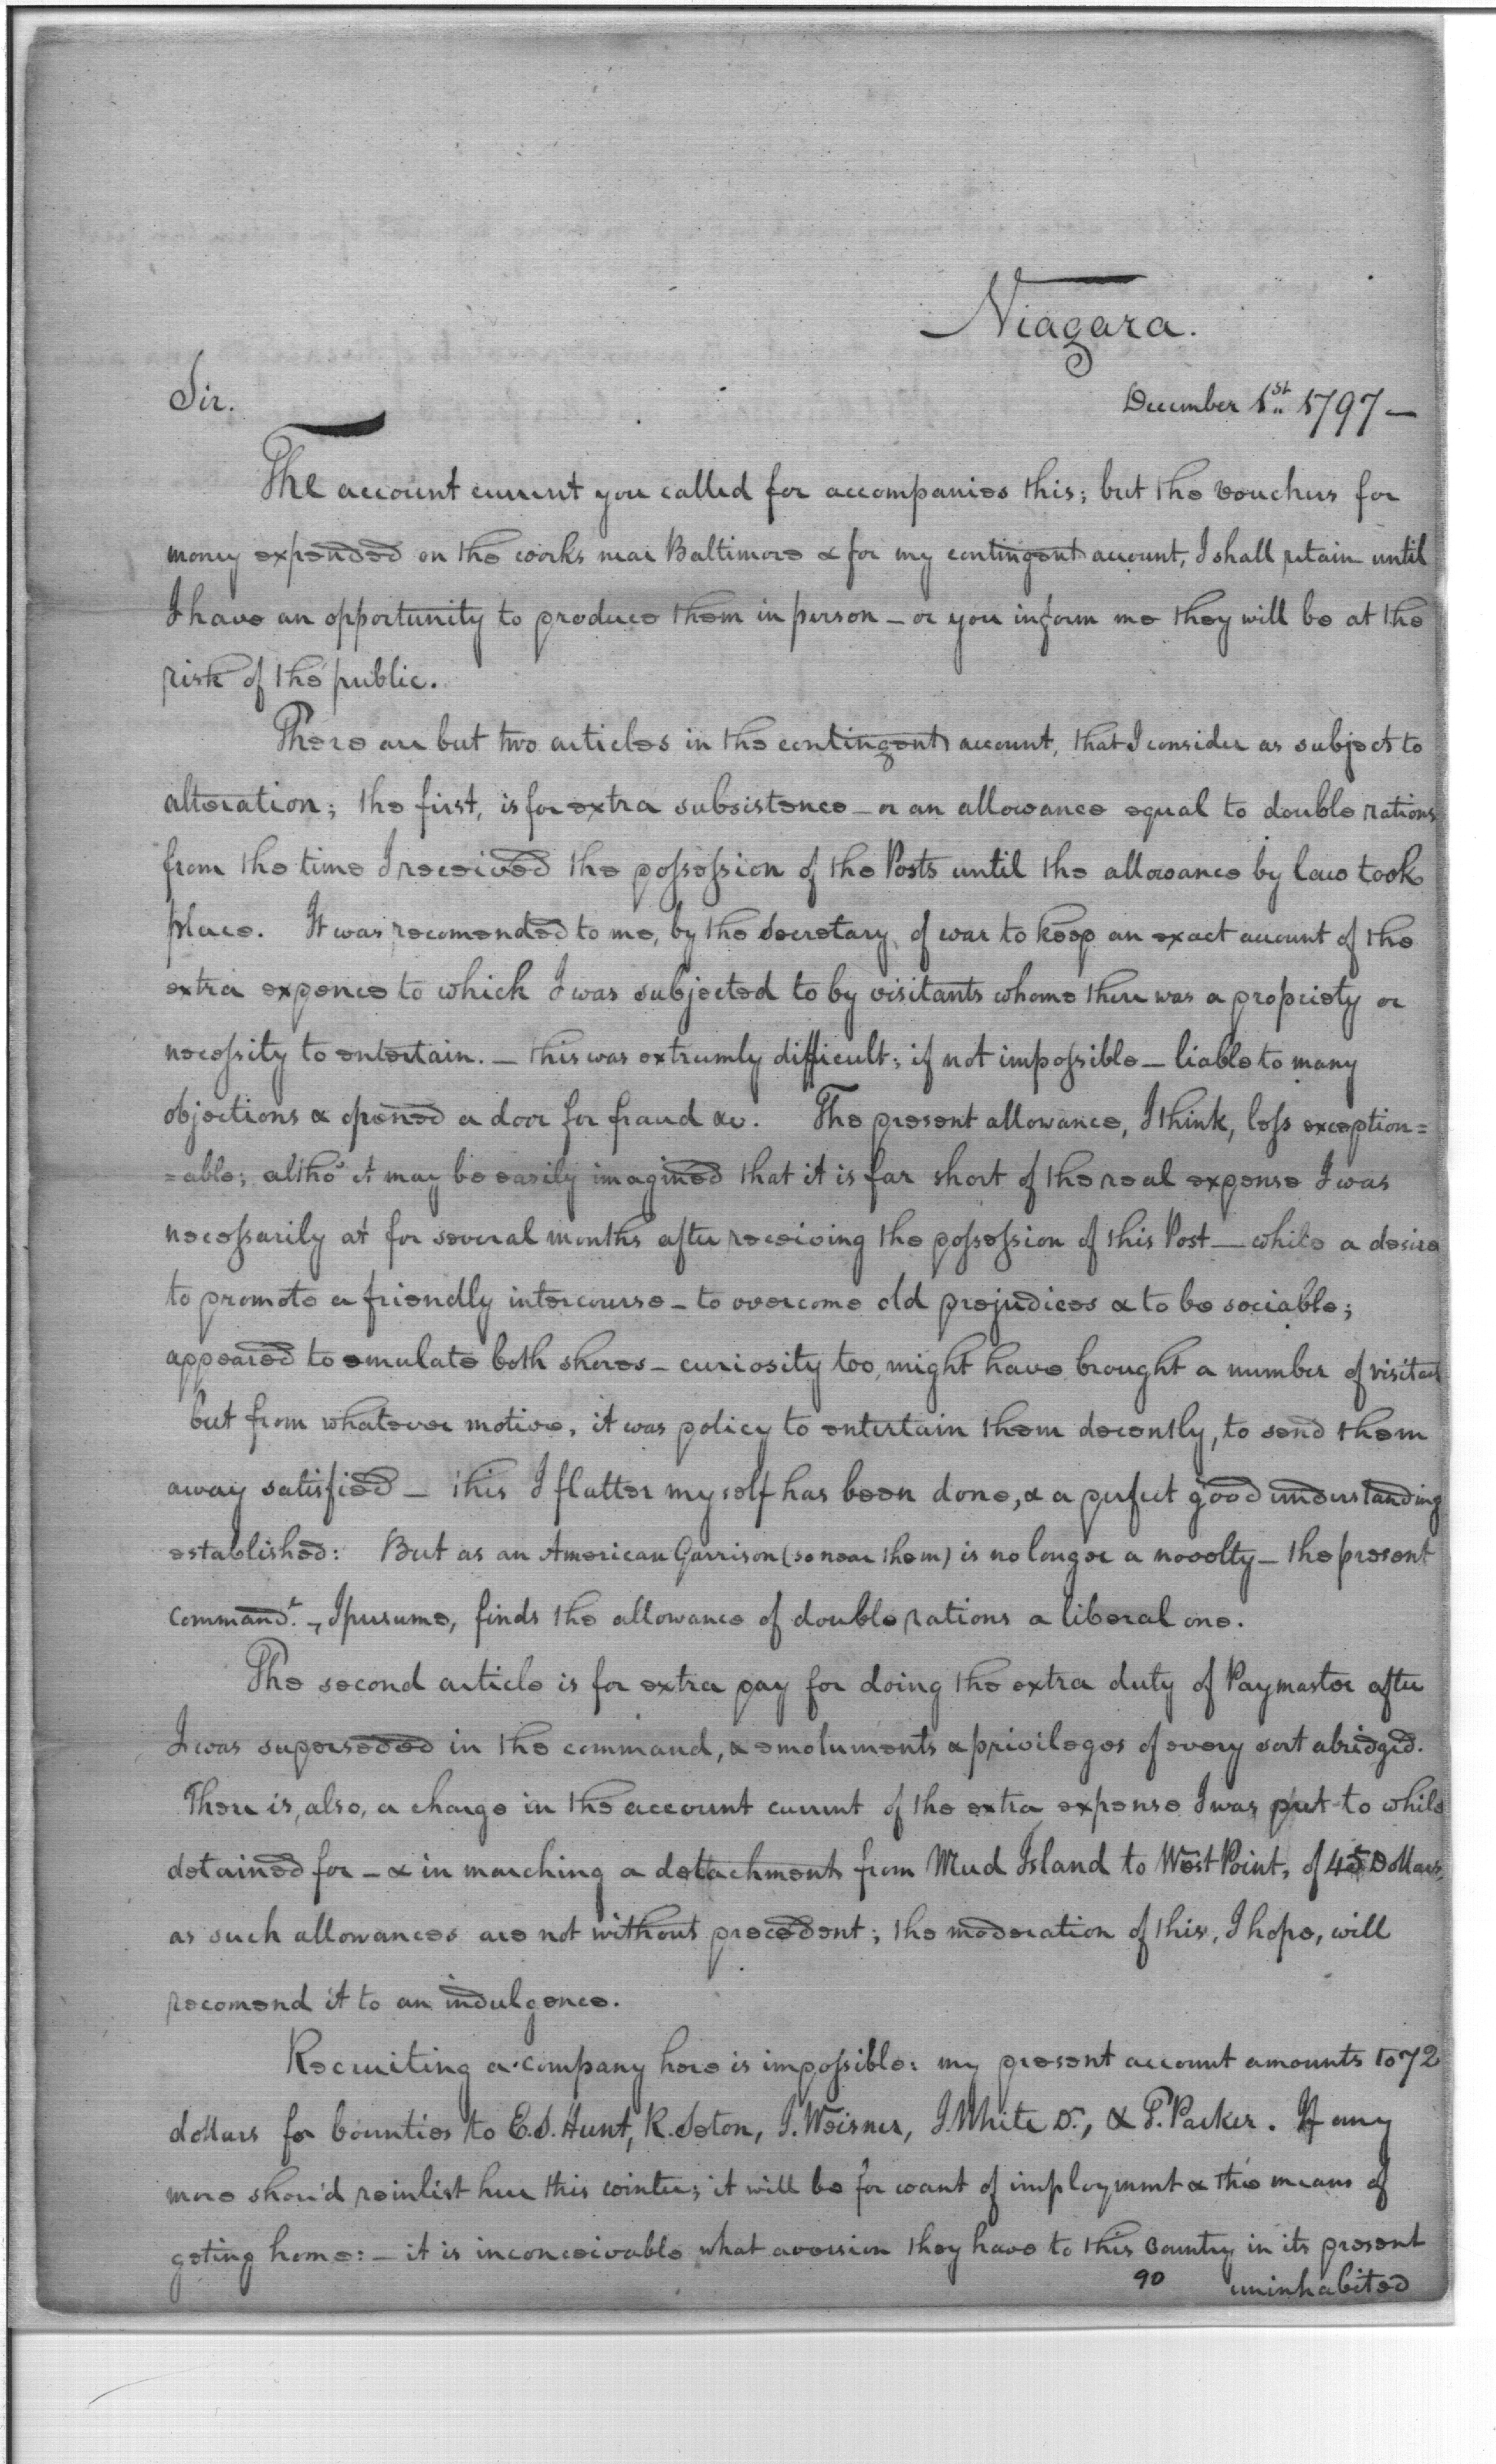 Niagara.
Sir.
December 1st 1797 —
The account current you called for accompanies this; but the vouchers for
money expended on the works near Baltimore & for my contingent account, I shall retain until
I have an opportunity to produce them in person — or you inform me they will be at the
risk of the public.
There are but two articles in the contingent account, that I consider as subject to
alteration; the first, is for extra subsistence — or an allowance equal to double rations
from the time I received the possession of the Posts until the allowance by law took
place. It was recomended to me, by the Secretary of war to keep an exact account of the
extra expence to which I was subjected to by visitants whome there was a propriety or
necessity to entertain. — this was extrumly difficult; if not impossible — liable to many
objections & opened a door for fraud &c. The present allowance, I think, less exception=
=able; altho' it may be easily imagined that it is far short of the real expense I was
necessarily at for several months after receiving the possession of this Post — while a desire
to promote a friendly intercourse — to overcome old prejudices & to be sociable;
appeared to emulate both shores — curiosity too, might have brought a number of visitors
but from whatever motive, it was policy to entertain them decently, to send them
away satisfied — this I flatter myself has been done, & a perfect good understanding
established: But as an American Garrison (so near them) is no longer a novelty — the present
Command.t —, I presume, finds the allowance of double rations a liberal one.
The second article is for extra pay for doing the extra duty of Paymaster after
I was superseded in the command, & emoluments & privileges of every sort abridged.
There is, also, a charge in the account current of the extra expense I was put to while
detained for — & in marching a detachment from Mud Island to West Point, of 45 Dollars,
as such allowances are not without precedent; the moderation of this, I hope, will
recomend it to an indulgence.
Recruiting a company here is impossible: my present account amounts to 72
dollars for bounties to E.S. Hunt, R. Seton, J. Weisner, J. White D.r, & P. Parker. If any
more shou'd reinlist here this winter; it will be for want of imployment & the means of
geting home: — it is inconceivable what aversion they have to this Country in its present
90 uninhabited